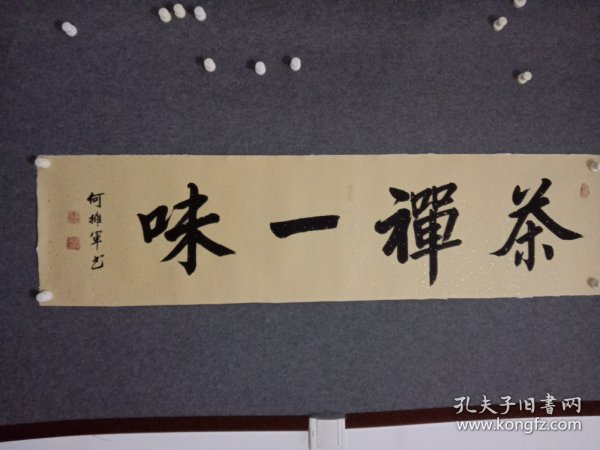 茶禪一味
何維軍书
孔夫子旧書网
www.kongfz.com